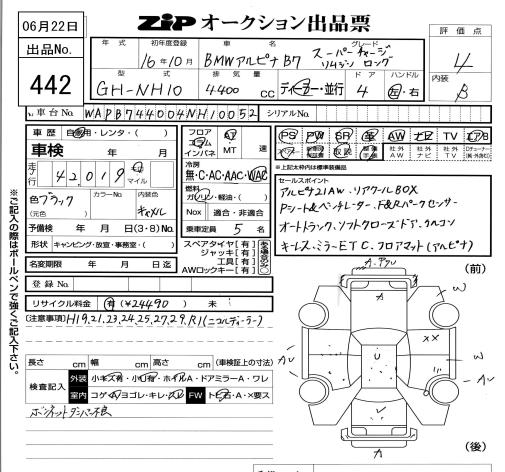 06月22日
出品No.
442
ZIP オークション出品票
年式 初年度登録 車名 グレード
16年10月 BMWアルピナ B7 スーパーチャージ リムジン ロング
型式 排気量 ドア ハンドル
GH-NH10 4400 CC ディーラー・並行 4 左・右
評価点
4
内装
B
車台No. WAPB744004NH10052 シリアルNo.
車歴 自家用・レンタ・( )
車検 年 月 日
走行 42,019 km マイル
色 ブラック カラーNo. 内装色
(元色) キャメル
予備検 年 月 日(3・8)No.
形状 キャンピング・放宣・事務室・( )
名変期限 年 月 日迄
登録No.
フロア AT
コラム
インパネ MT 速
冷房
無・C・AC・AAC・WAC
燃料
ガソリン・軽油・( )
Nox 適合・非適合
乗車定員 5 名
スペアタイヤ[有]
ジャッキ[有]
工具[有]
AWロックキー[有]
PS PW SR 革 AW ナビ TV エアB
社外AW 社外ナビ 社外TV
※上記太わ内は標準装備品
セールスポイント
アルピナ21AW.リアクールBOX
Pシート&ベンチレーター.F&Rパークセンサー
オートトランク.ソフトクローズドア.クルコン
キーレス.ミラーETC.フロアマット(アルピナ)
リサイクル料金 有 (¥24490) 未
(注意事項) H19.21.23.24.25.27.29.R1(ニコルディーラー)
長さ cm 幅 cm 高さ cm (車検証上の寸法)
検査記入 外装 小キズ有・小凹有・ホイルA・ドアミラーA・ワレ
室内 コゲ・A・ヨゴレ・キレ・スレ FW トビ石・A・×要ス
ボンネットダンパー不良
※ご記入の際はボールペンで強くご記入下さい。
(前)
A
W
U
××
W
(後)